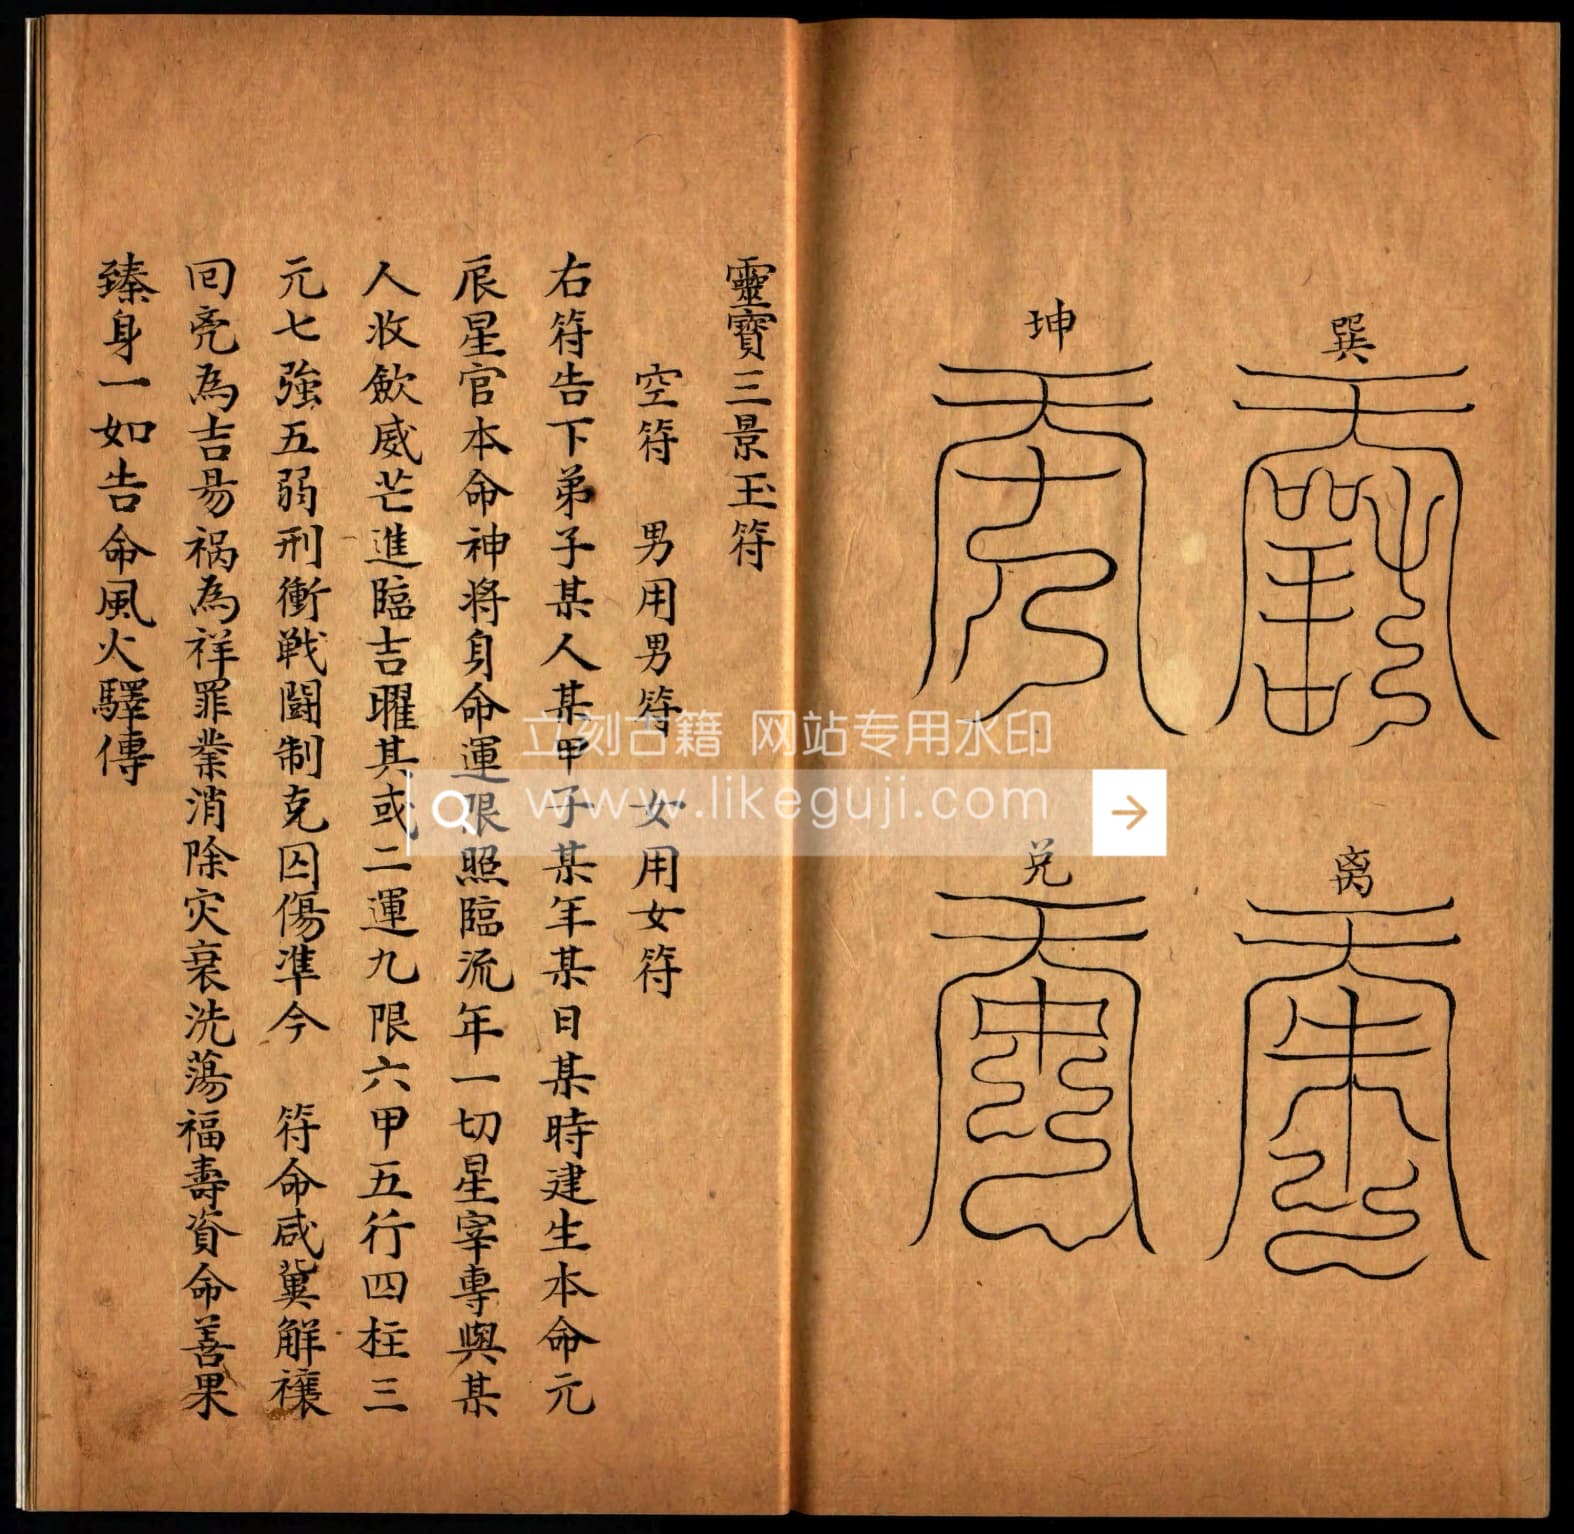 巽
離
坤
兑
靈寶三景玉符
空符 男用男符 女用女符
右符告下弟子某人某甲子某年某日某時建生本命元
辰星官本命神将身命運限照臨流年一切星宰專與某
人收歛威芒進臨吉曜其或二運九限六甲五行四柱三
元七強五弱刑衝戦闘制克囚傷準今 符命咸兾解禳
囘㐬為吉昜禍為祥罪業消除灾衰洗蕩福壽資命善果
臻身一如告命風火驛傳
立刻古籍 网站专用水印
www.likeguji.com